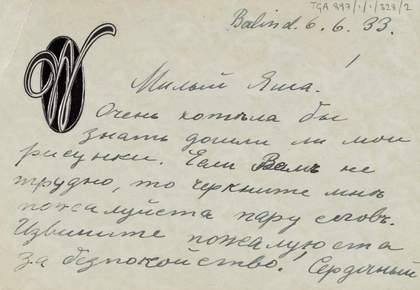 TGA 897/1/1/328/2
Balind. 6. 6. 33.
W
Милый Яша!
Очень хотѣла бы
знать дошли ли мои
рисунки. Если Вамъ не
трудно, то черкните мнѣ
пожалуйста пару словъ.
Извините пожалуюста
за безпокойство. Сердечный